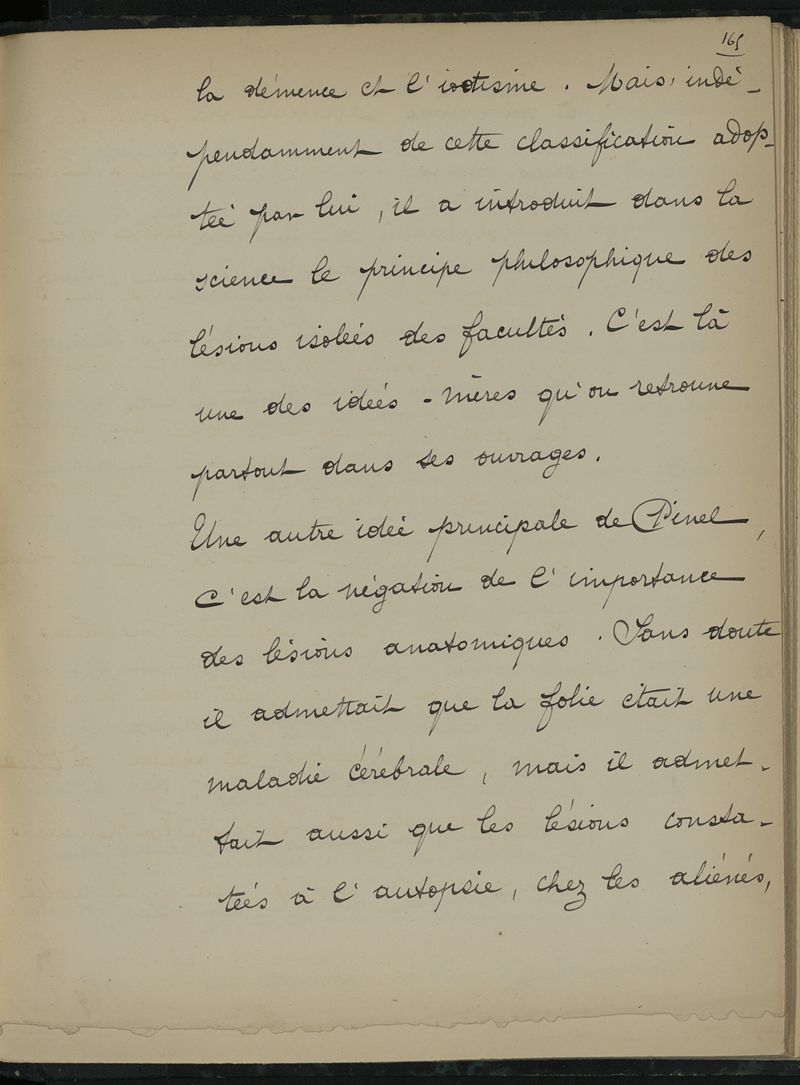 165
la démence et l'idiotisme. Mais, indé-
pendamment de cette classification adop-
tée par lui, il a introduit dans la
science le principe philosophique des
lésions isolées des facultés. C'est là
une des idées-mères qu'on retrouve
partout dans ses ouvrages.
Une autre idée principale de Pinel,
c'est la négation de l'importance
des lésions anatomiques. Sans doute
il admettait que la folie était une
maladie cérébrale, mais il admet-
tait aussi que les lésions consta-
tées à l'autopsie, chez les aliénés,